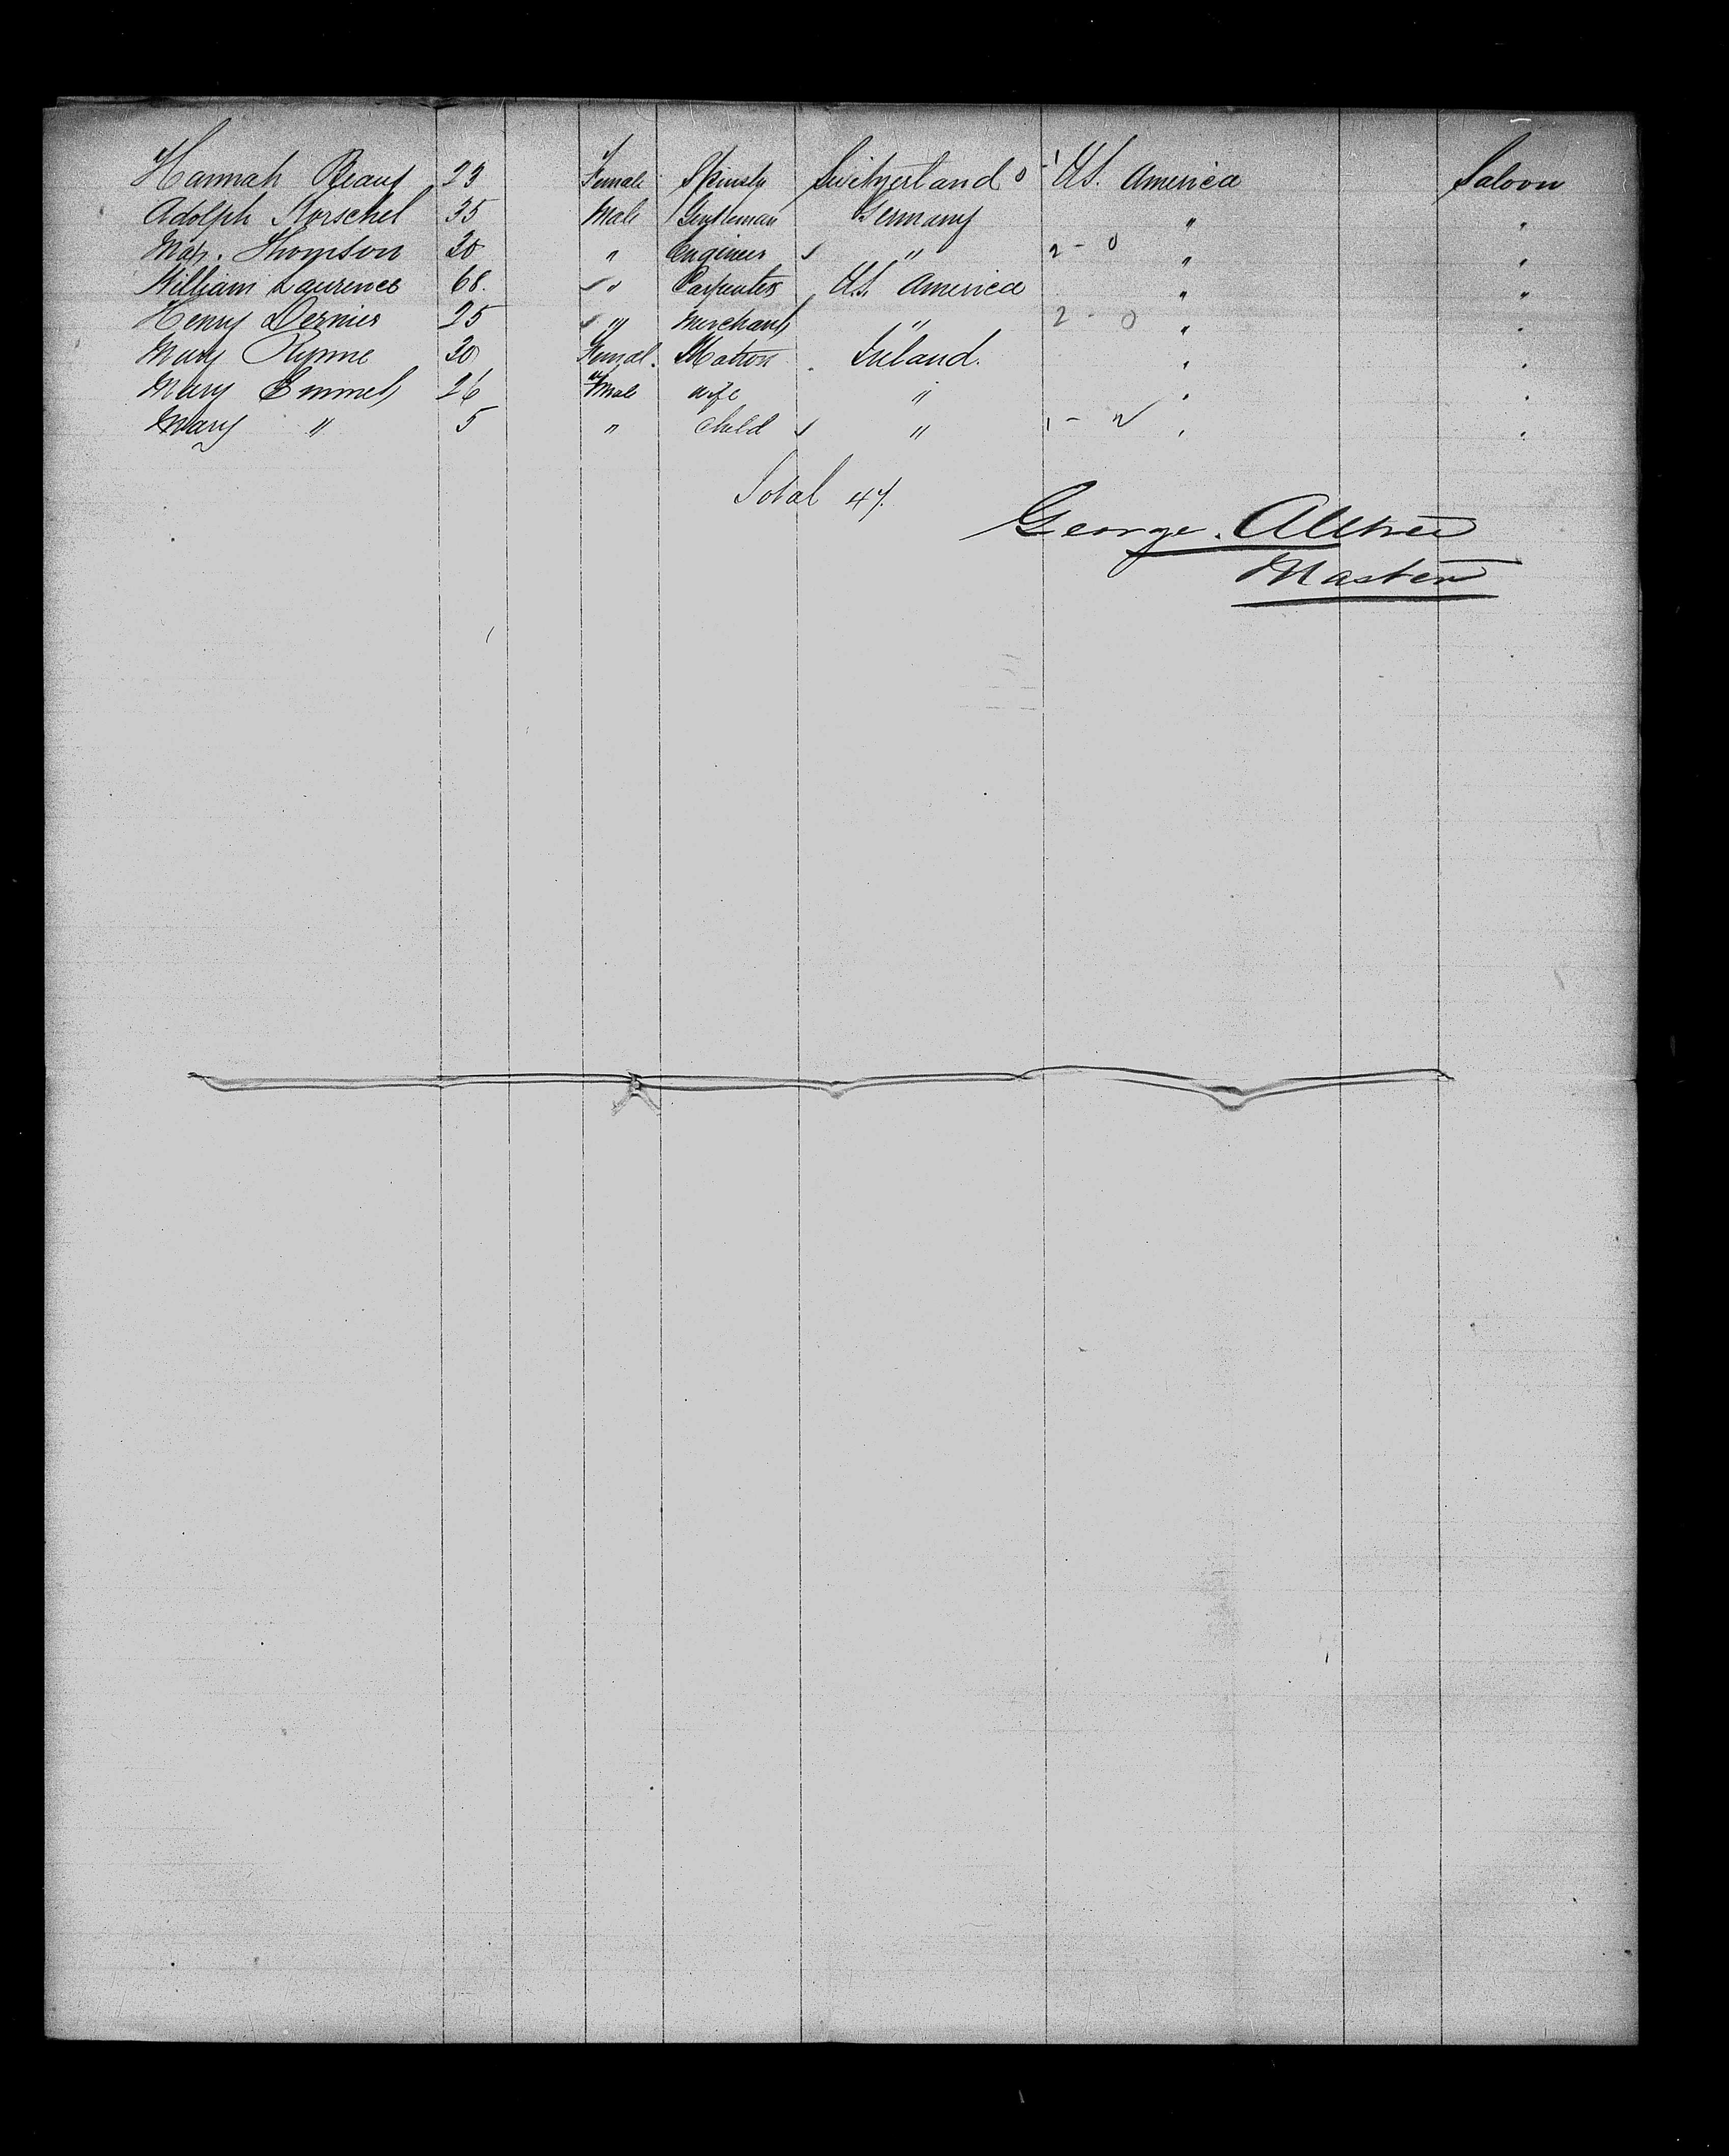 Hannah 23 Female Switzerland US. America Saloon
Adolph Korschel 35 Male Gentleman Germany " "
Max. Thompson 20 " Engineer " 2 - 0 " "
William Laurence 68. " Carpenter US. America " "
Henry Dernier 25 " Merchant " 2 - 0 " "
Mary Rynne 30 Femal. Matron Ireland. " "
Mary Emmet 26 Male wife " " "
Mary " 5 " Child " 1 - " "
Total 47.
George.
Master